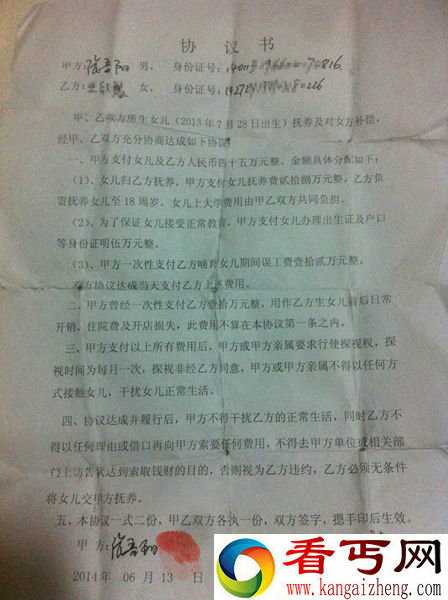 协 议 书
甲方: 男， 身份证号:
乙方: 女， 身份证号: 226
甲、乙双方所生女儿（2013年7月28日出生）抚养及对女方补偿，
经甲、乙双方充分协商达成如下协议:
一、甲方支付女儿及乙方人民币四十五万元整。金额具体分配如下:
（1）、女儿归乙方抚养，甲方支付女儿抚养费贰拾捌万元整，乙方负
责抚养女儿至18周岁。女儿上大学费用由甲乙双方共同负担。
（2）、为了保证女儿接受正常教育，甲方支付女儿办理出生证及户口
等身份证明伍万元整。
（3）、甲方一次性支付乙方哺育女儿期间误工费壹拾贰万元整。
协议达成当天支付乙方上述费用。
二、甲方曾经一次性支付乙方壹拾万元整，用作乙方生女儿前后日常
开销、住院费及开店损失，此费用不算在本协议第一条之内。
三、甲方支付以上所有费用后，甲方或甲方亲属要求行使探视权，探
视时间为每月一次，探视非经乙方同意，甲方或甲方亲属不得以任何方
式接触女儿，干扰女儿正常生活。
四、协议达成并履行后，甲方不得干扰乙方的正常生活，同时乙方不
得以任何理由或借口再向甲方索要任何费用，不得去甲方单位或相关部
门上访告状达到索取钱财的目的，否则视为乙方违约，乙方必须无条件
将女儿交甲方抚养。
五、本协议一式二份，甲乙双方各执一份，双方签字，摁手印后生效。
甲 方:
2014 年 06 月 13 日
看丐网
www.kangaizheng.com